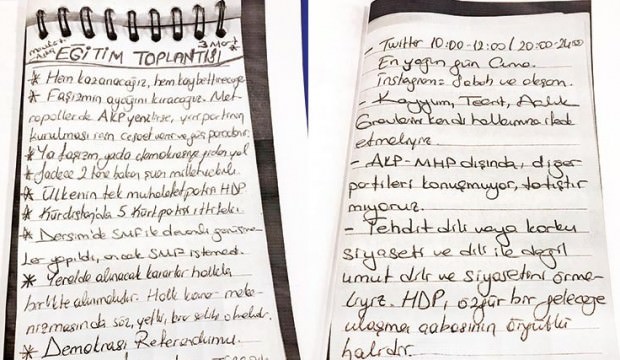 3 Mart
EĞİTİM TOPLANTISI
* Hem kazanacağız, hem kaybettireceğiz
* Faşizmin ayağını kıracağız. Met-
ropollerde AKP yenilirse, yeni partinin
kurulması için cesaret verir ve güç
* Ya faşizm, yada demokrasiye giden yol
* Sadece 2 tane bakan şuan milletvekili
* Ülkenin tek muhalefet partisi HDP
* Kürdistan'da 5 Kürt partisi ittifakı
* Dersim'de SMF ile devamlı görüşme-
ler yapıldı, ancak SMF istemedi.
* Yerelde alınacak kararlar halkla
birlikte alınmalıdır. Halk karar meka-
nizmasında söz, yetki, sahibi olmalıdır.
* Demokrasi Referandumu.
- Twitter 10:00-12:00 / 20:00-24:00
En yoğun gün Cuma.
İnstagram= Sabah ve akşam.
- Kayyum, Tecrit, Açlık
Grevlerini kendi halkımıza ifade
etmeliyiz.
- AKP-MHP dışında, diğer
partileri konuşmuyor, tartıştır
mıyoruz.
- Tehdit dili veya korku
siyaseti ve dili ile değil
umut dili ve siyasetini örme-
liyiz. HDP, özgür bir geleceğe
ulaşma çabasının örgütlü
halidir.